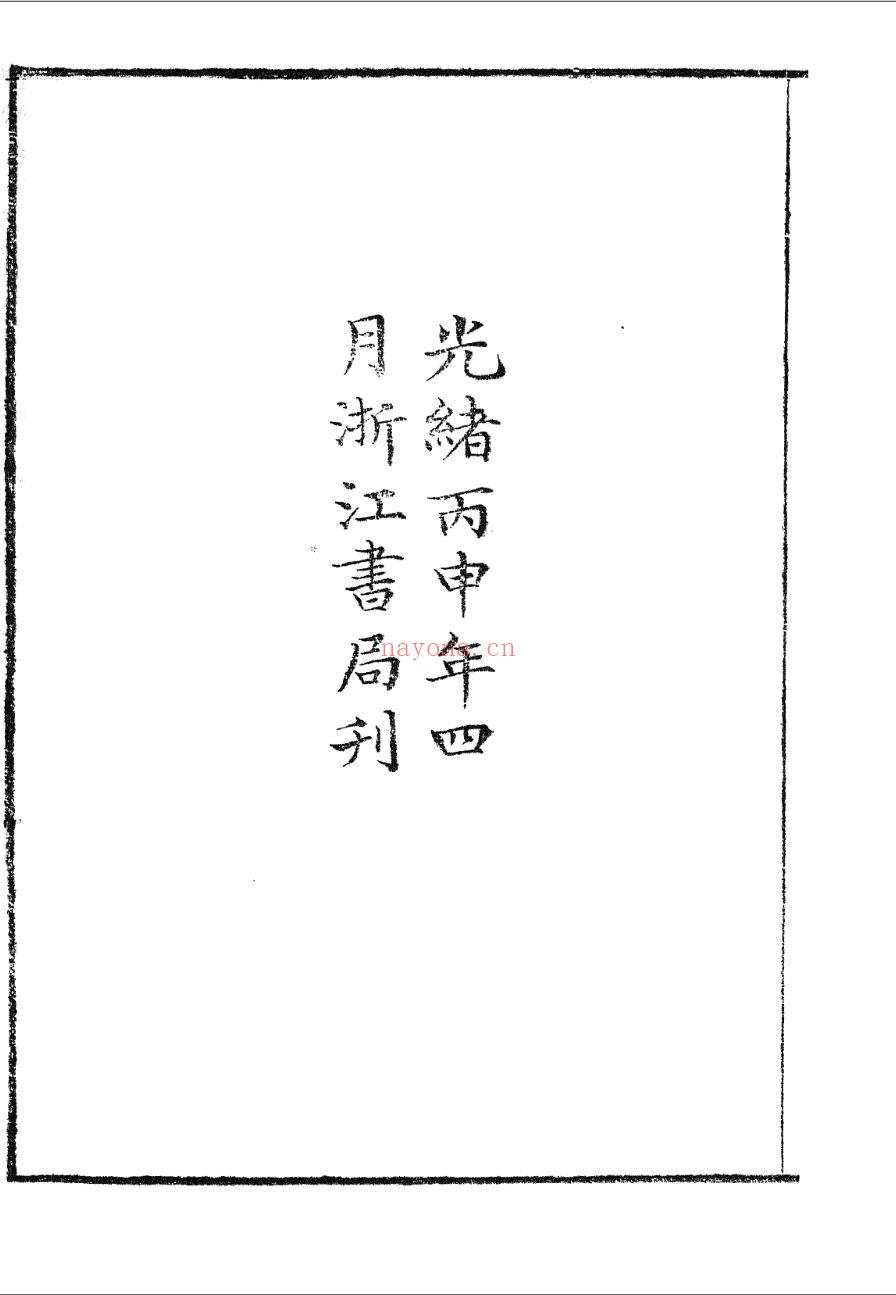 光緒丙申年四
月浙江書局刋
nayona.cn